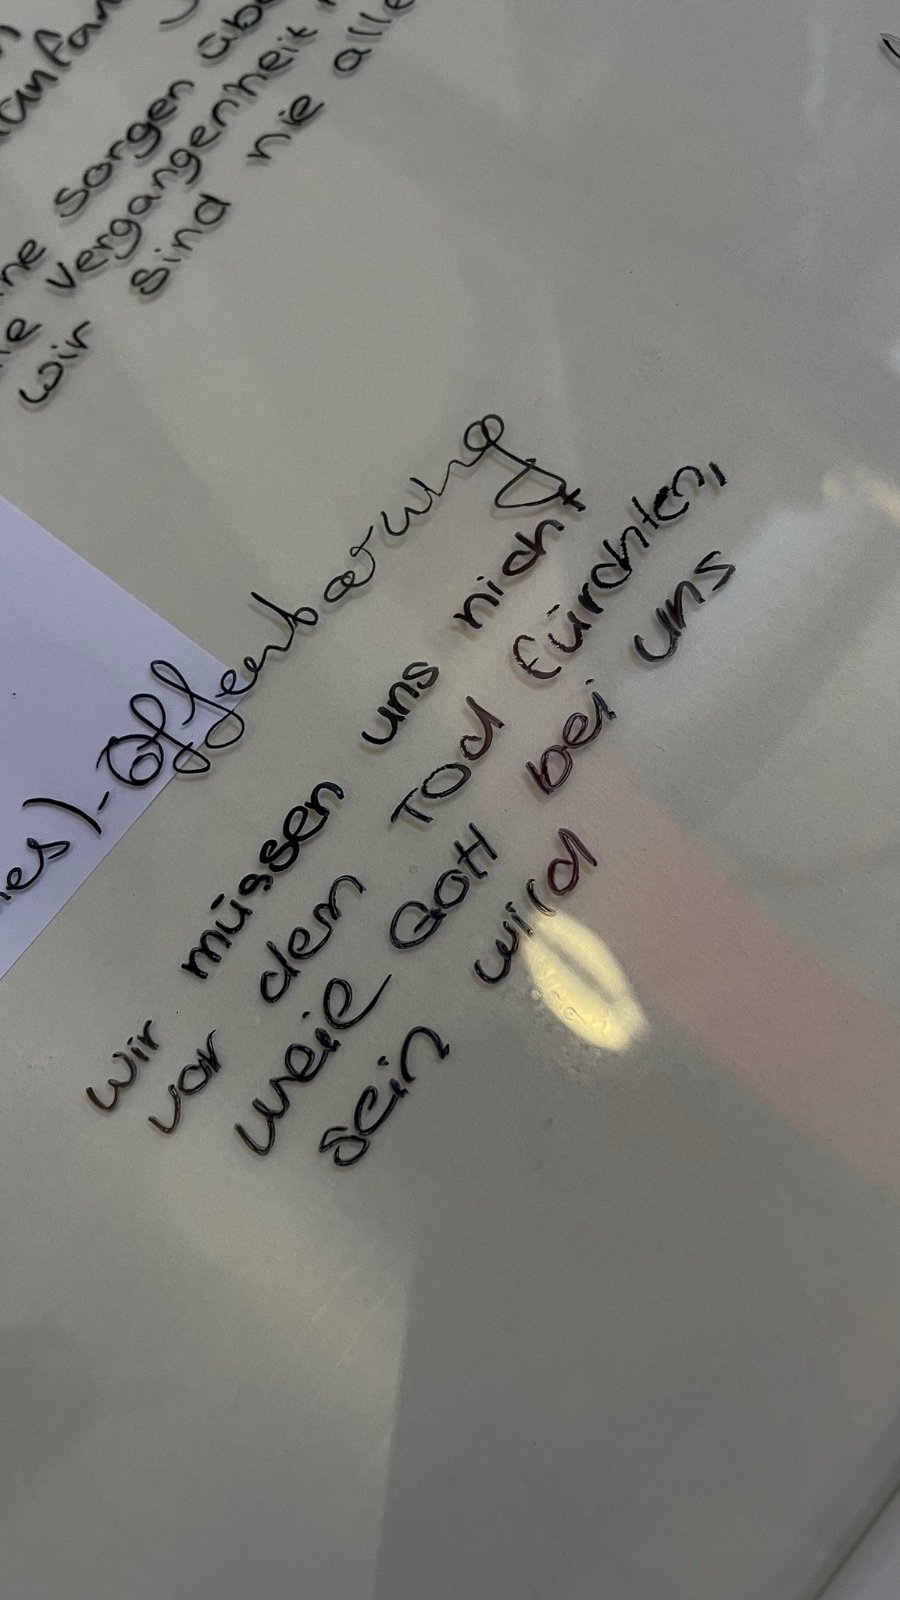 sorgen
vergangenheit
wir sind nie
-Offenbarung
wir müssen uns nicht
vor dem Tod fürchten,
weil Gott bei uns
sein wird